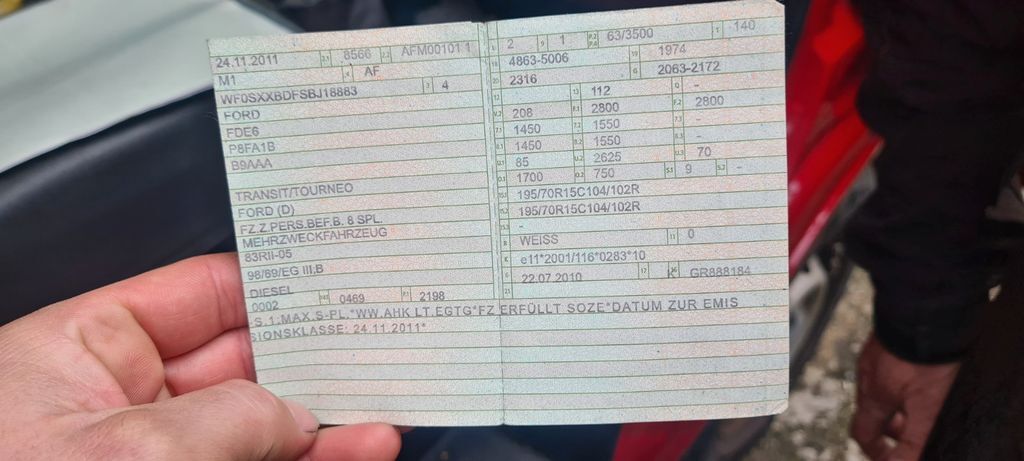 24.11.2011 8566 AFM00101 1
M1 AF
WF0SXXBDFSBJ18883 4
FORD
FDE6
P8FA1B
B9AAA
TRANSIT/TOURNEO
FORD (D)
FZ.Z.PERS.BEF.B. 8 SPL.
MEHRZWECKFAHRZEUG
83RII-05
98/69/EG III;B
DIESEL
0002 0469 2198
2 1 63/3500 140
4863-5006 1974
2316 2063-2172
112 -
208 2800 2800
1450 1550 -
1450 1550 -
85 2625 70
1700 750 9 -
195/70R15C104/102R
195/70R15C104/102R
-
WEISS 0
e11*2001/116*0283*10
22.07.2010 K GR888184
S.1.MAX.S-PL.*WW.AHK LT.EGTG*FZ ERFÜLLT SOZE*DATUM ZUR EMIS
SIONSKLASSE: 24.11.2011*